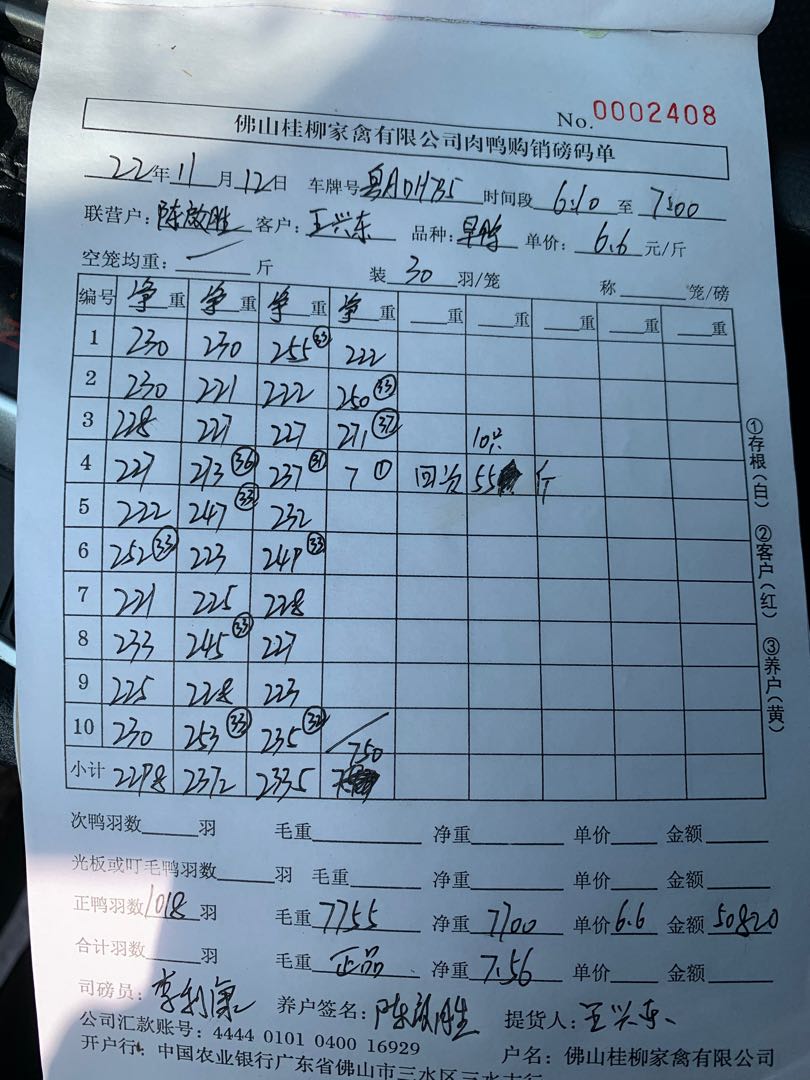 No. 0002408
佛山桂柳家禽有限公司肉鸭购销磅码单
22年11月12日 车牌号粤ADH735 时间段6:10至7:00
联营户:陈啟胜 客户:王兴东 品种:旱鸭 单价:6.6元/斤
空笼均重:/斤 装30羽/笼 称 笼/磅
编号 净重 净重 净重 净重 重 重 重 重 重
1 230 230 255㉝ 222
2 230 221 222 250㉝
3 228 227 227 271㊲ 10只
4 227 273㊱ 237㉛ 7① 回冲 55 斤
5 222 247㉝ 232
6 252㉝ 223 249㉝
7 221 225 228
8 233 245㉝ 227
9 225 228 223
10 230 253㉝ 235㉜ /
小计 2298 2372 2335 750
次鸭羽数 羽 毛重 净重 单价 金额
光板或叮毛鸭羽数 羽 毛重 净重 单价 金额
正鸭羽数1018羽 毛重7755 净重7700 单价6.6 金额50820
合计羽数 羽 毛重 正品 净重7.56 单价 金额
司磅员:李利 养户签名:陈啟胜 提货人:王兴东
公司汇款账号:4444 0101 0400 16929
开户行:中国农业银行广东省佛山市三水区三水支行 户名:佛山桂柳家禽有限公司
①存根(白) ②客户(红) ③养户(黄)